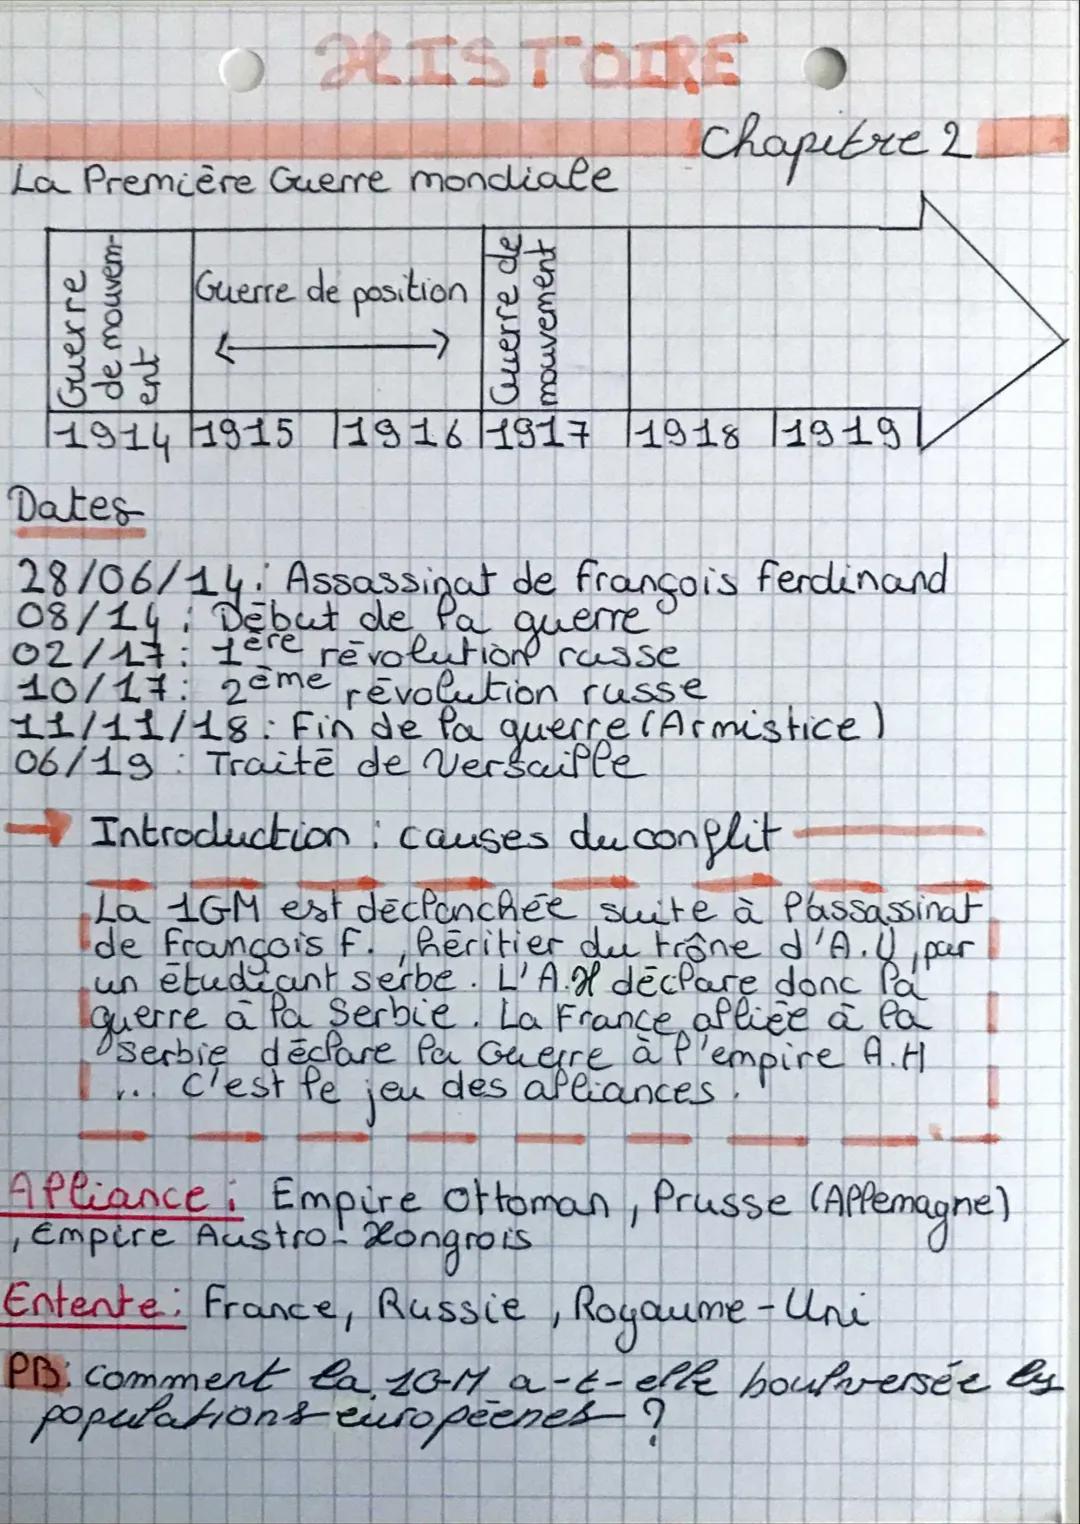 HISTOIRE
Chapitre 2
La Première Guerre mondiale
Guerre
de mouvem-
ent
Guerre de position
Guerre de
mouvement
1914 1915 1916 1917 1918 1919
Dates
28/06/14: Assassinat de François Ferdinand
08/14: Début de la guerre
02/17: 1ère révolution russe
10/17: 2ème révolution russe
11/11/18: Fin de la guerre (Armistice)
06/19: Traité de Versaille
→ Introduction : causes du conflit
La 1GM est déclanchée suite à l'assassinat
de François F., héritier du trône d'A.H, par
un étudiant serbe. L'A.H déclare donc la
guerre à la Serbie. La France alliée à la
Serbie déclare la Guerre à l'empire A.H
... C'est le jeu des alliances.
Alliance: Empire Ottoman, Prusse (Allemagne)
, Empire Austro-Hongrois
Entente: France, Russie, Royaume-Uni
PB: Comment la 1GM a-t-elle boulversée les
populations européenes ?